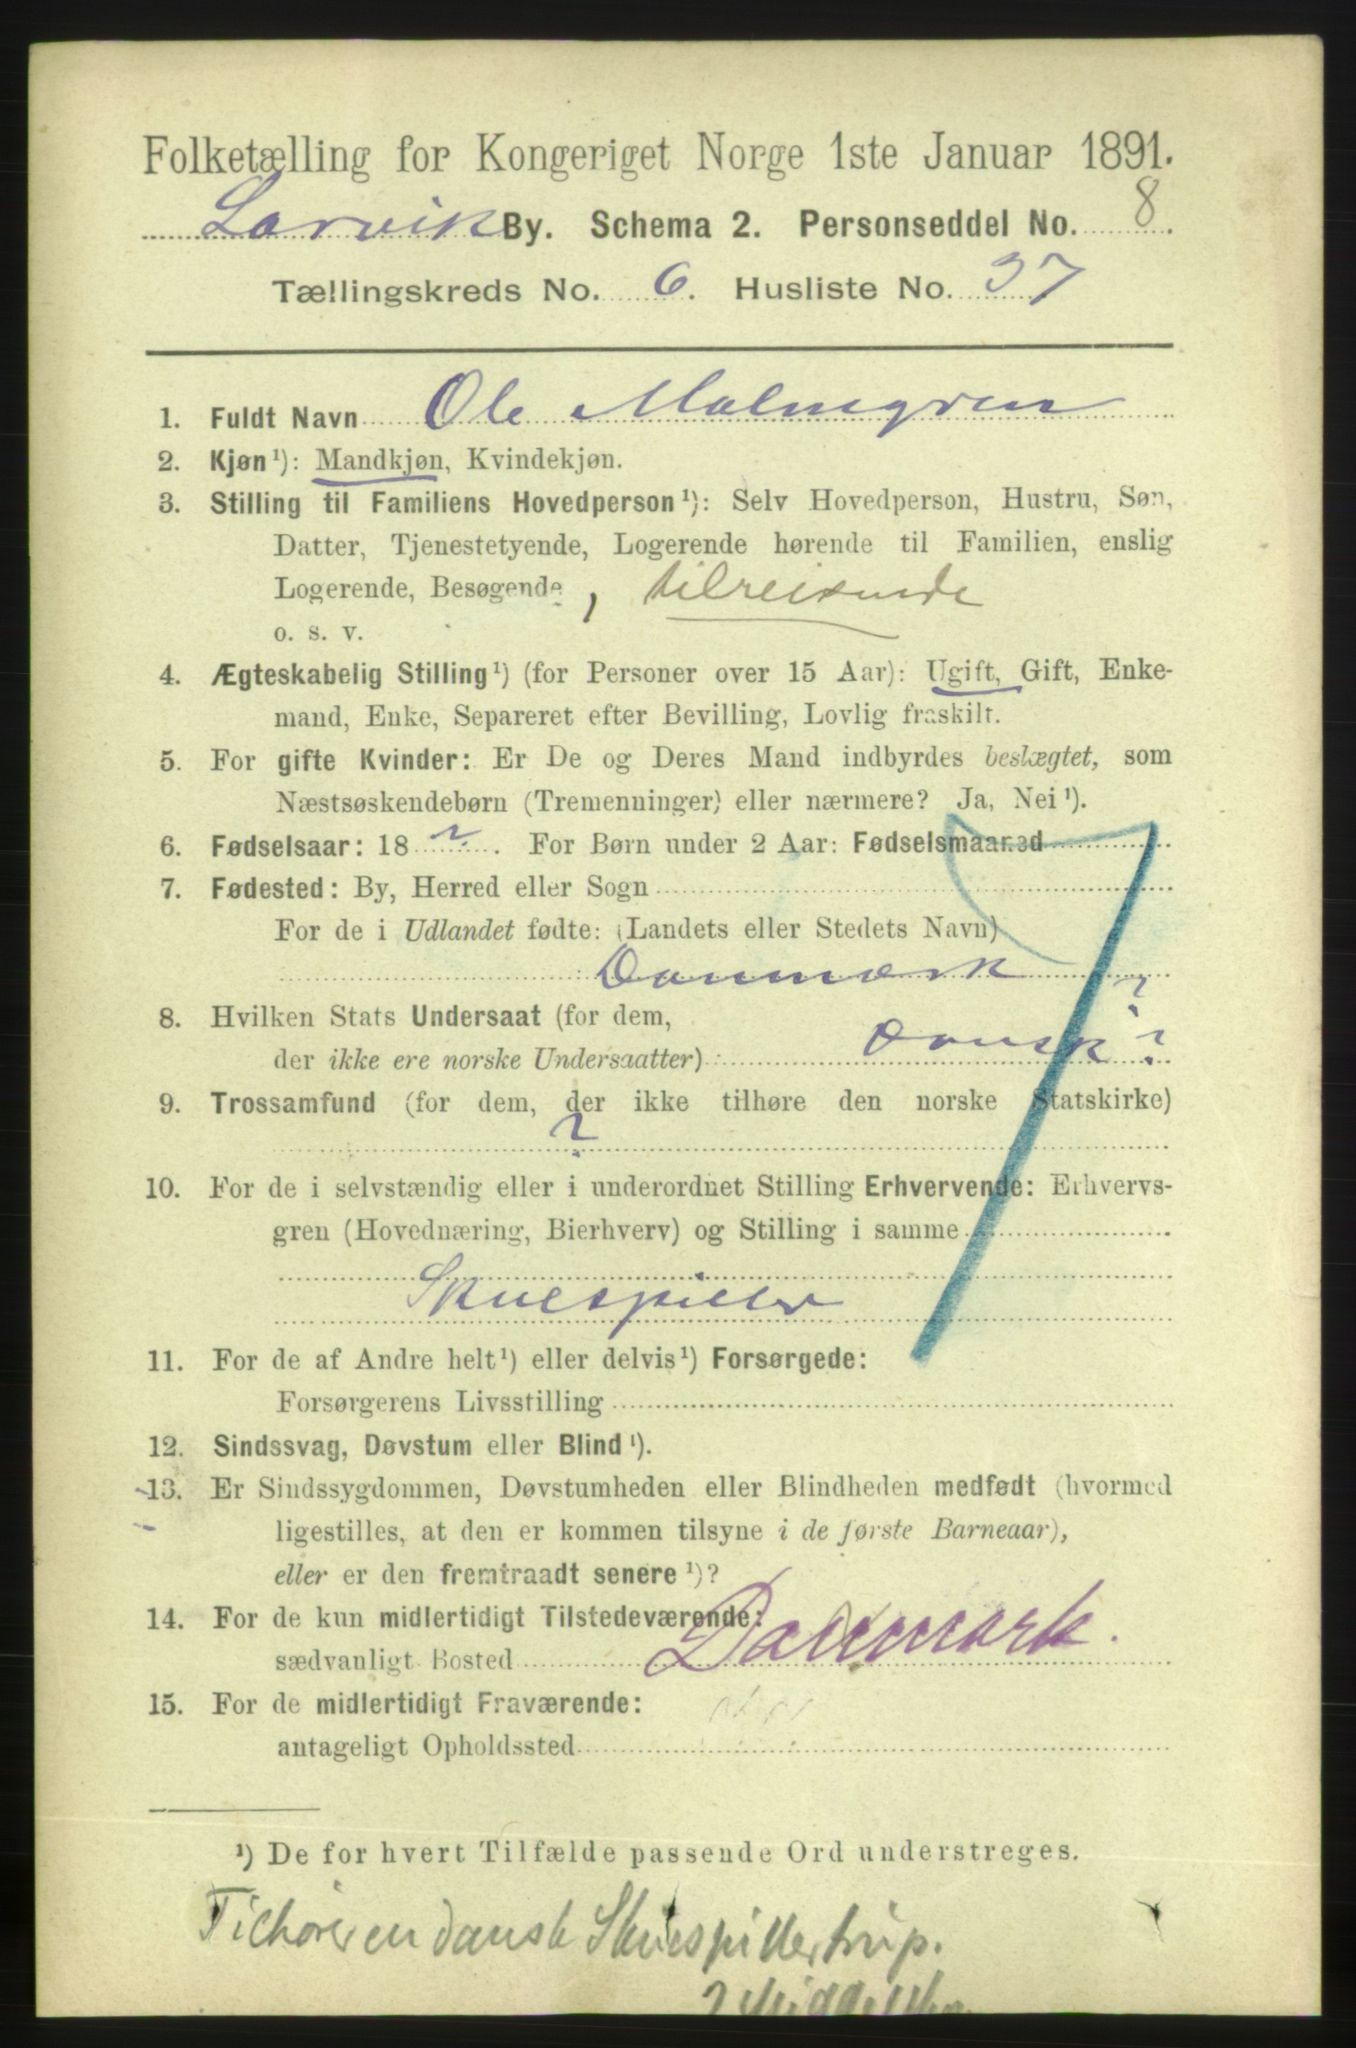 Folketælling for Kongeriget Norge 1ste Januar 1891.
Larvik By. Schema 2. Personseddel No. 8.
Tællingskreds No. 6. Husliste No. 37
1. Fuldt Navn Ole Malmgren
2. Kjøn¹): Mandkjøn, Kvindekjøn.
3. Stilling til Familiens Hovedperson¹): Selv Hovedperson, Hustru, Søn,
Datter, Tjenestetyende, Logerende hørende til Familien, enslig
Logerende, Besøgende, tilreisende
o. s. v.
4. Ægteskabelig Stilling¹) (for Personer over 15 Aar): Ugift, Gift, Enke-
mand, Enke, Separeret efter Bevilling, Lovlig fraskilt.
5. For gifte Kvinder: Er De og Deres Mand indbyrdes beslægtet, som
Næstsøskendebørn (Tremenninger) eller nærmere? Ja, Nei¹).
6. Fødselsaar: 18 ? . For Børn under 2 Aar: Fødselsmaaned
7. Fødested: By, Herred eller Sogn
For de i Udlandet fødte: (Landets eller Stedets Navn)
Danmark ?
8. Hvilken Stats Undersaat (for dem,
der ikke ere norske Undersaatter) Dansk ?
9. Trossamfund (for dem, der ikke tilhøre den norske Statskirke)
?
10. For de i selvstændig eller i underordnet Stilling Erhvervende: Erhvervs-
gren (Hovednæring, Bierhverv) og Stilling i samme
Skuespiller
11. For de af Andre helt¹) eller delvis¹) Forsørgede:
Forsørgerens Livsstilling
12. Sindssvag, Døvstum eller Blind¹).
13. Er Sindssygdommen, Døvstumheden eller Blindheden medfødt (hvormed
ligestilles, at den er kommen tilsyne i de første Barneaar),
eller er den fremtraadt senere¹)?
14. For de kun midlertidigt Tilstedeværende:
sædvanligt Bosted Danmark.
15. For de midlertidigt Fraværende:
antageligt Opholdssted
¹) De for hvert Tilfælde passende Ord understreges.
en dansk Skuespillertrup.